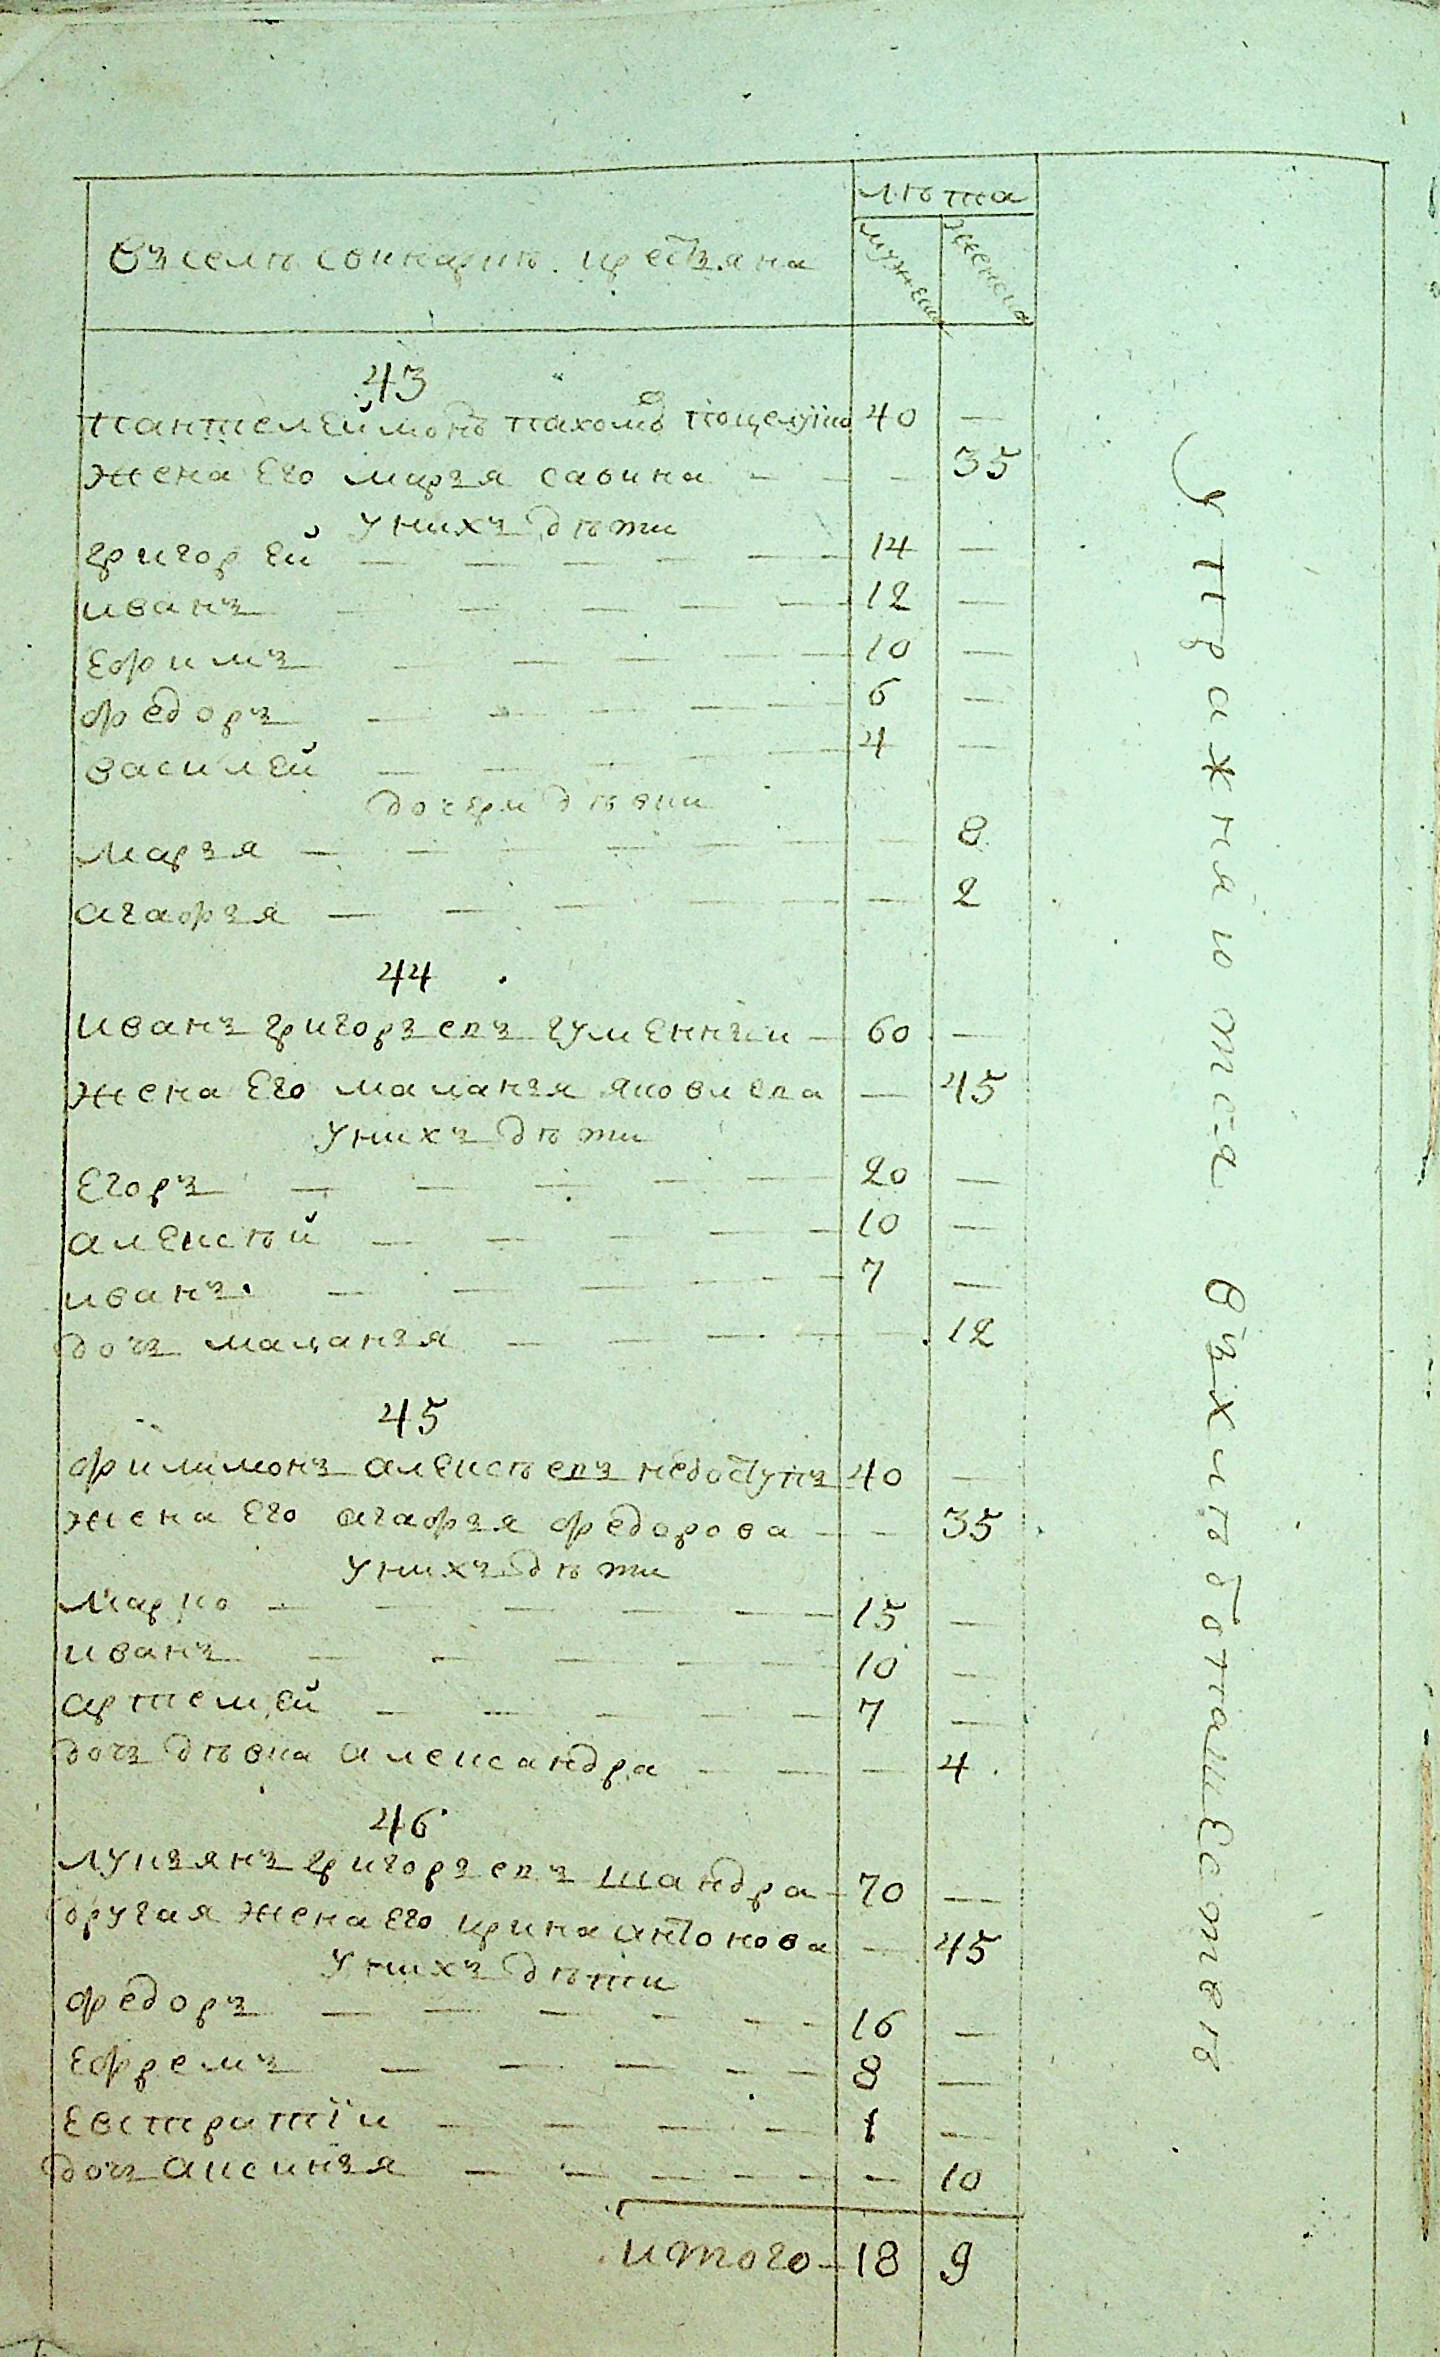 лѣта
Въ селѣ Сокнарик крестьяна
мужеска женска
43
Пантелеймонъ Пахомовъ Поцелуйко 40 —
жена его Марья Савина — — — 35
у нихъ дѣти
Григорей — — — — — 14 —
Иванъ — — — — — 12 —
Ефимъ — — — — 10 —
Федоръ — — — — — 6 —
Василей — — — — — 4 —
дочери дѣвки
Марья — — — — — — — 8
Агафья — — — — — — 2
44
Иванъ Григорьевъ Гуменный — 60 —
жена его Маланья Яковлева — 45
у нихъ дѣти
Егоръ — — — — — 20 —
Алексѣй — — — — — 10 —
Иванъ — — — — — 7 —
дочь Маланья — — — — — 12
45
Филимонъ Алексѣевъ Недоступъ 40 —
жена его Агафья Федорова — — 35
у нихъ дѣти
Марко — — — — — 15 —
Иванъ — — — — — 10 —
Артемей — — — — — 7 —
дочь дѣвка Александра — — — 4
46
Лукьянъ Григорьевъ Шандра — 70 —
другая жена его Ирина Антонова — 45
у нихъ дѣти
Федоръ — — — — — — 16 —
Ефремъ — — — — — 8 —
Евстратіи — — — — 1 —
дочь Аксинья — — — — — — 10
итого — 18 9
Упражняются въ хлѣбопашествѣ